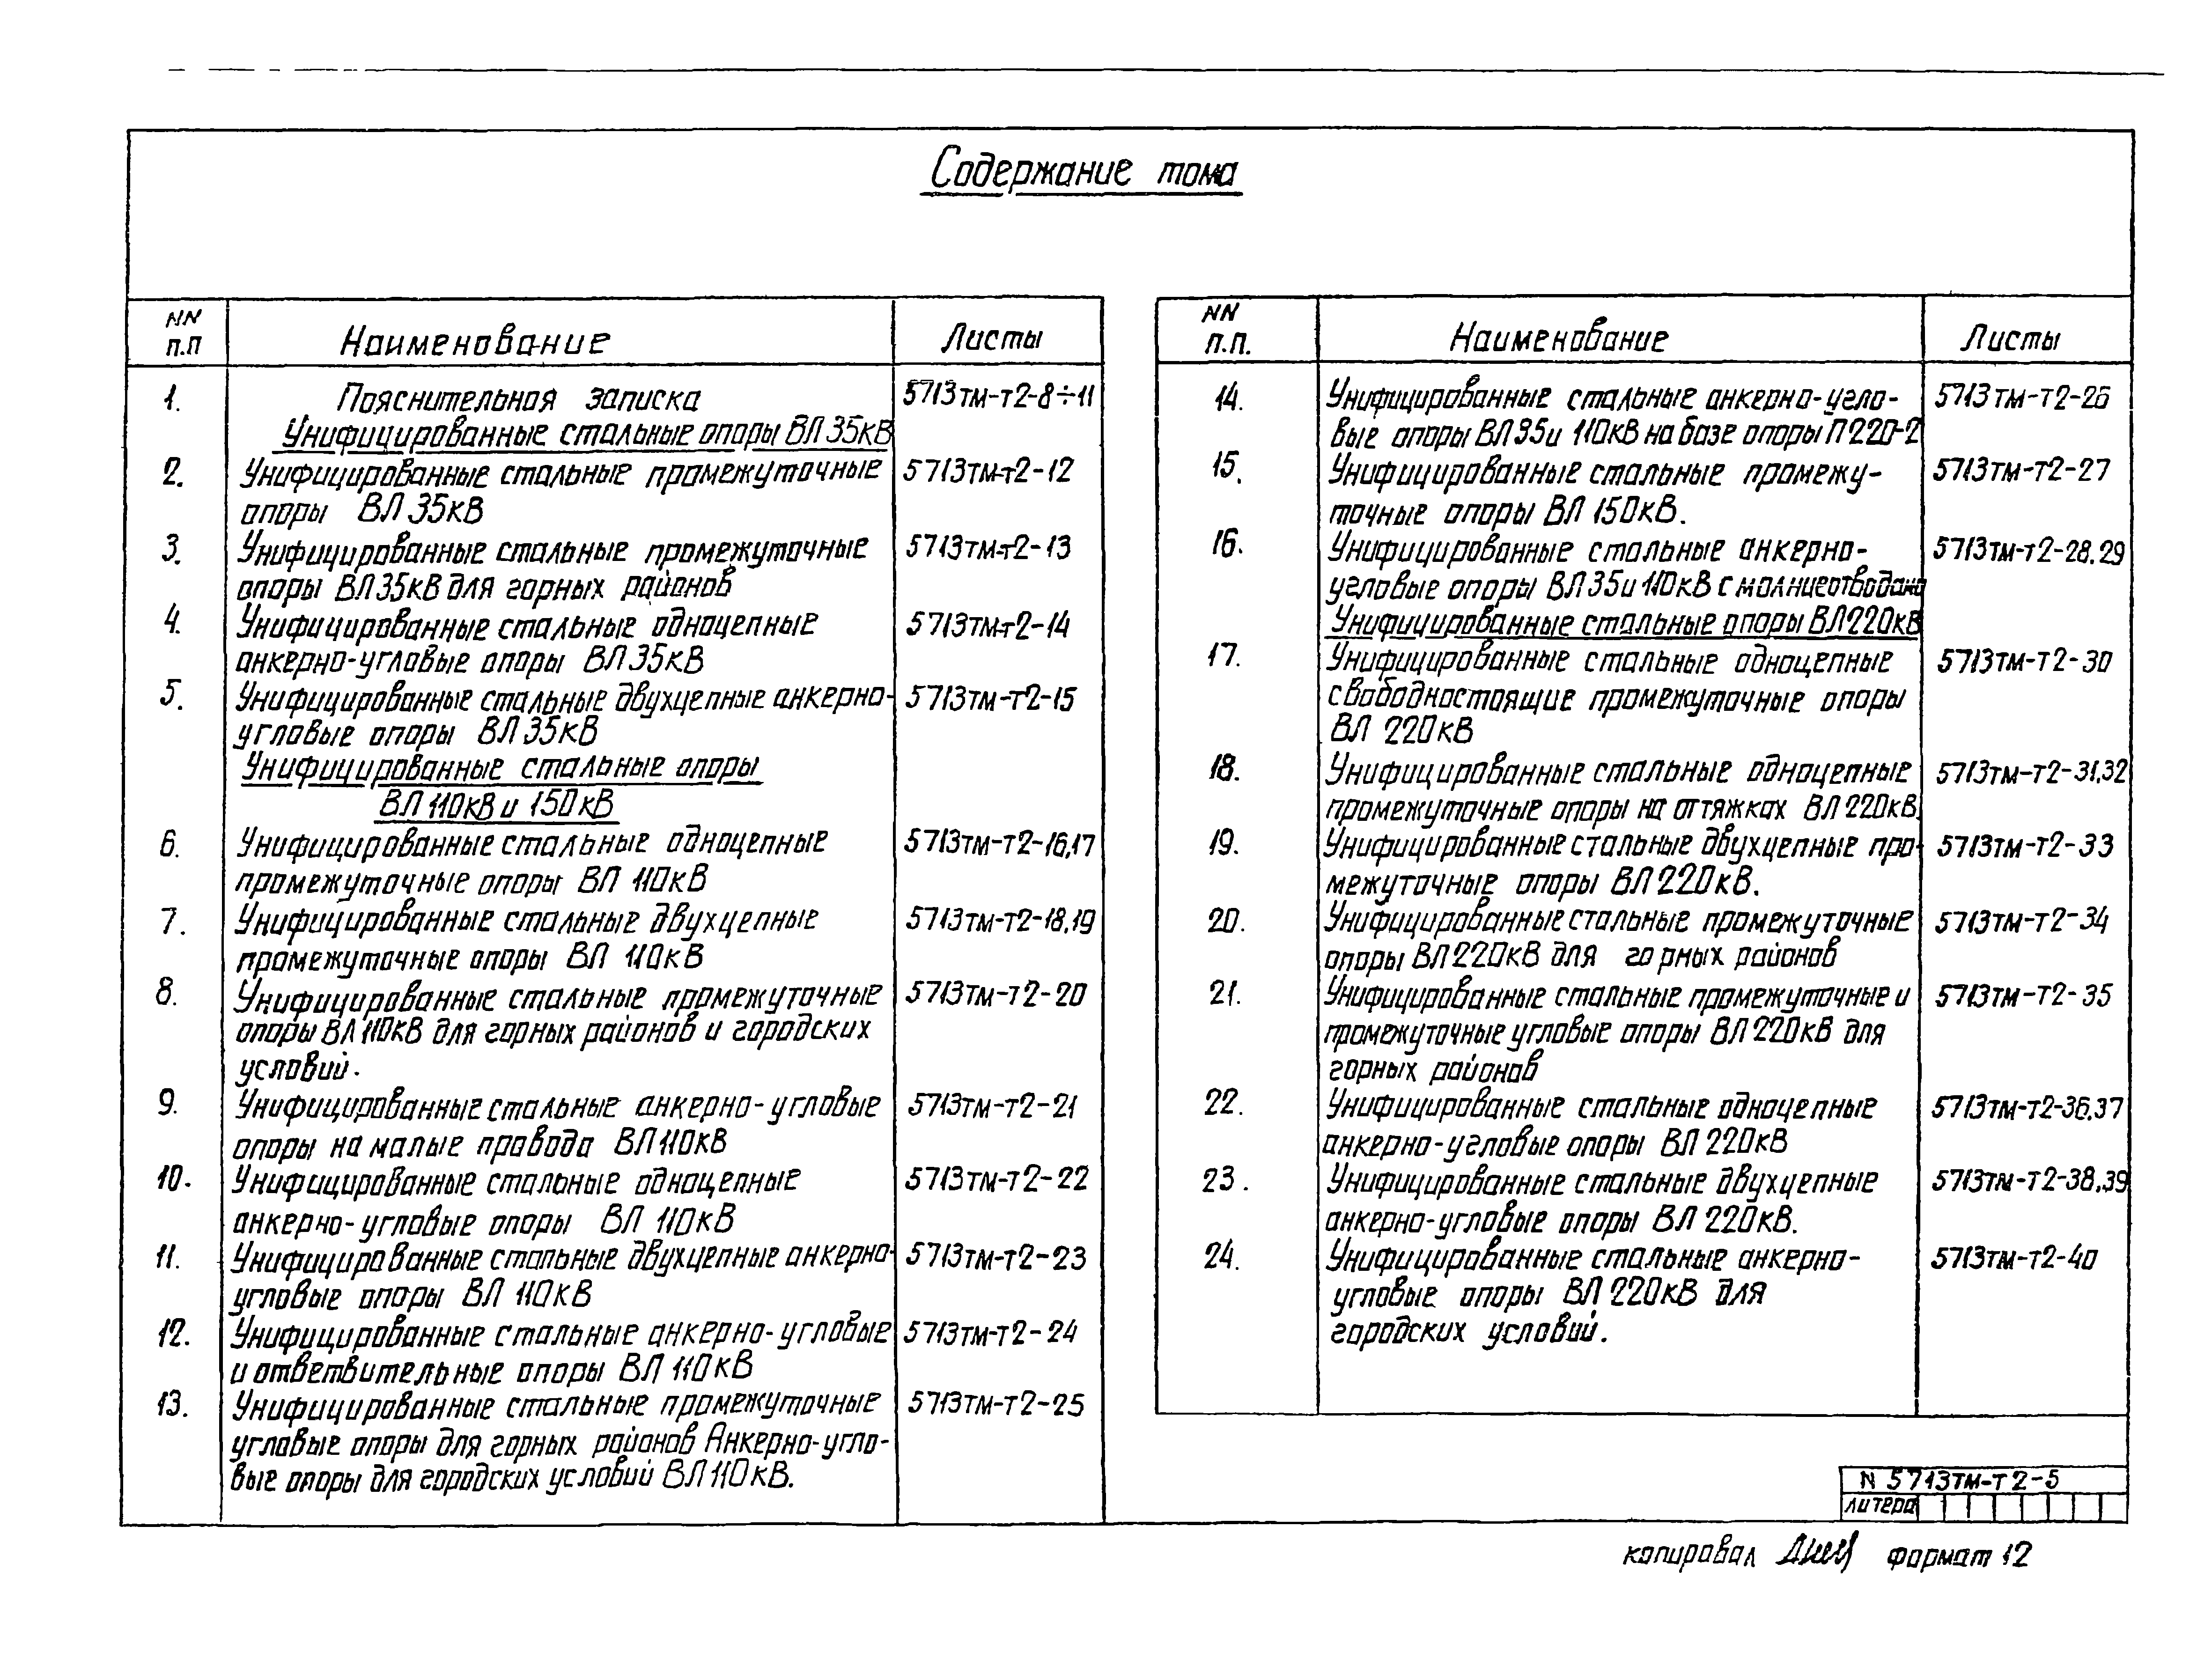 Содержание тома
NN
п.п
Наименование
Листы
1. Пояснительная записка 5713тм-т2-8÷11
Унифицированные стальные опоры ВЛ 35кВ
2. Унифицированные стальные промежуточные 5713тм-т2-12
опоры ВЛ 35кВ
3. Унифицированные стальные промежуточные 5713тм-т2-13
опоры ВЛ 35кВ для горных районов
4. Унифицированные стальные одноцепные 5713тм-т2-14
анкерно-угловые опоры ВЛ 35кВ
5. Унифицированные стальные двухцепные анкерно- 5713тм-т2-15
угловые опоры ВЛ 35кВ
Унифицированные стальные опоры
ВЛ 110кВ и 150кВ
6. Унифицированные стальные одноцепные 5713тм-т2-16,17
промежуточные опоры ВЛ 110кВ
7. Унифицированные стальные двухцепные 5713тм-т2-18,19
промежуточные опоры ВЛ 110кВ
8. Унифицированные стальные промежуточные 5713тм-т2-20
опоры ВЛ 110кВ для горных районов и городских
условий.
9. Унифицированные стальные анкерно-угловые 5713тм-т2-21
опоры на малые провода ВЛ 110кВ
10. Унифицированные стальные одноцепные 5713тм-т2-22
анкерно-угловые опоры ВЛ 110кВ
11. Унифицированные стальные двухцепные анкерно- 5713тм-т2-23
угловые опоры ВЛ 110кВ
12. Унифицированные стальные анкерно-угловые 5713тм-т2-24
и ответвительные опоры ВЛ 110кВ
13. Унифицированные стальные промежуточные 5713тм-т2-25
угловые опоры для горных районов Анкерно-угло-
вые опоры для городских условий ВЛ 110кВ.
NN
п.п.
Наименование
Листы
14. Унифицированные стальные анкерно-угло- 5713тм-т2-26
вые опоры ВЛ 35 и 110кВ на базе опоры П220-2
15. Унифицированные стальные промежу- 5713тм-т2-27
точные опоры ВЛ 150кВ.
16. Унифицированные стальные анкерно- 5713тм-т2-28,29
угловые опоры ВЛ 35 и 110кВ с молниеотводами
Унифицированные стальные опоры ВЛ 220кВ
17. Унифицированные стальные одноцепные 5713тм-т2-30
свободностоящие промежуточные опоры
ВЛ 220кВ
18. Унифицированные стальные одноцепные 5713тм-т2-31,32
промежуточные опоры на оттяжках ВЛ 220кВ.
19. Унифицированные стальные двухцепные про- 5713тм-т2-33
межуточные опоры ВЛ 220кВ.
20. Унифицированные стальные промежуточные 5713тм-т2-34
опоры ВЛ 220кВ для горных районов
21. Унифицированные стальные промежуточные и 5713тм-т2-35
промежуточные угловые опоры ВЛ 220кВ для
горных районов
22. Унифицированные стальные одноцепные 5713тм-т2-36,37
анкерно-угловые опоры ВЛ 220кВ
23. Унифицированные стальные двухцепные 5713тм-т2-38,39
анкерно-угловые опоры ВЛ 220кВ.
24. Унифицированные стальные анкерно- 5713тм-т2-40
угловые опоры ВЛ 220кВ для
городских условий.
N 5713тм-т2-5
литера
копировал формат 12